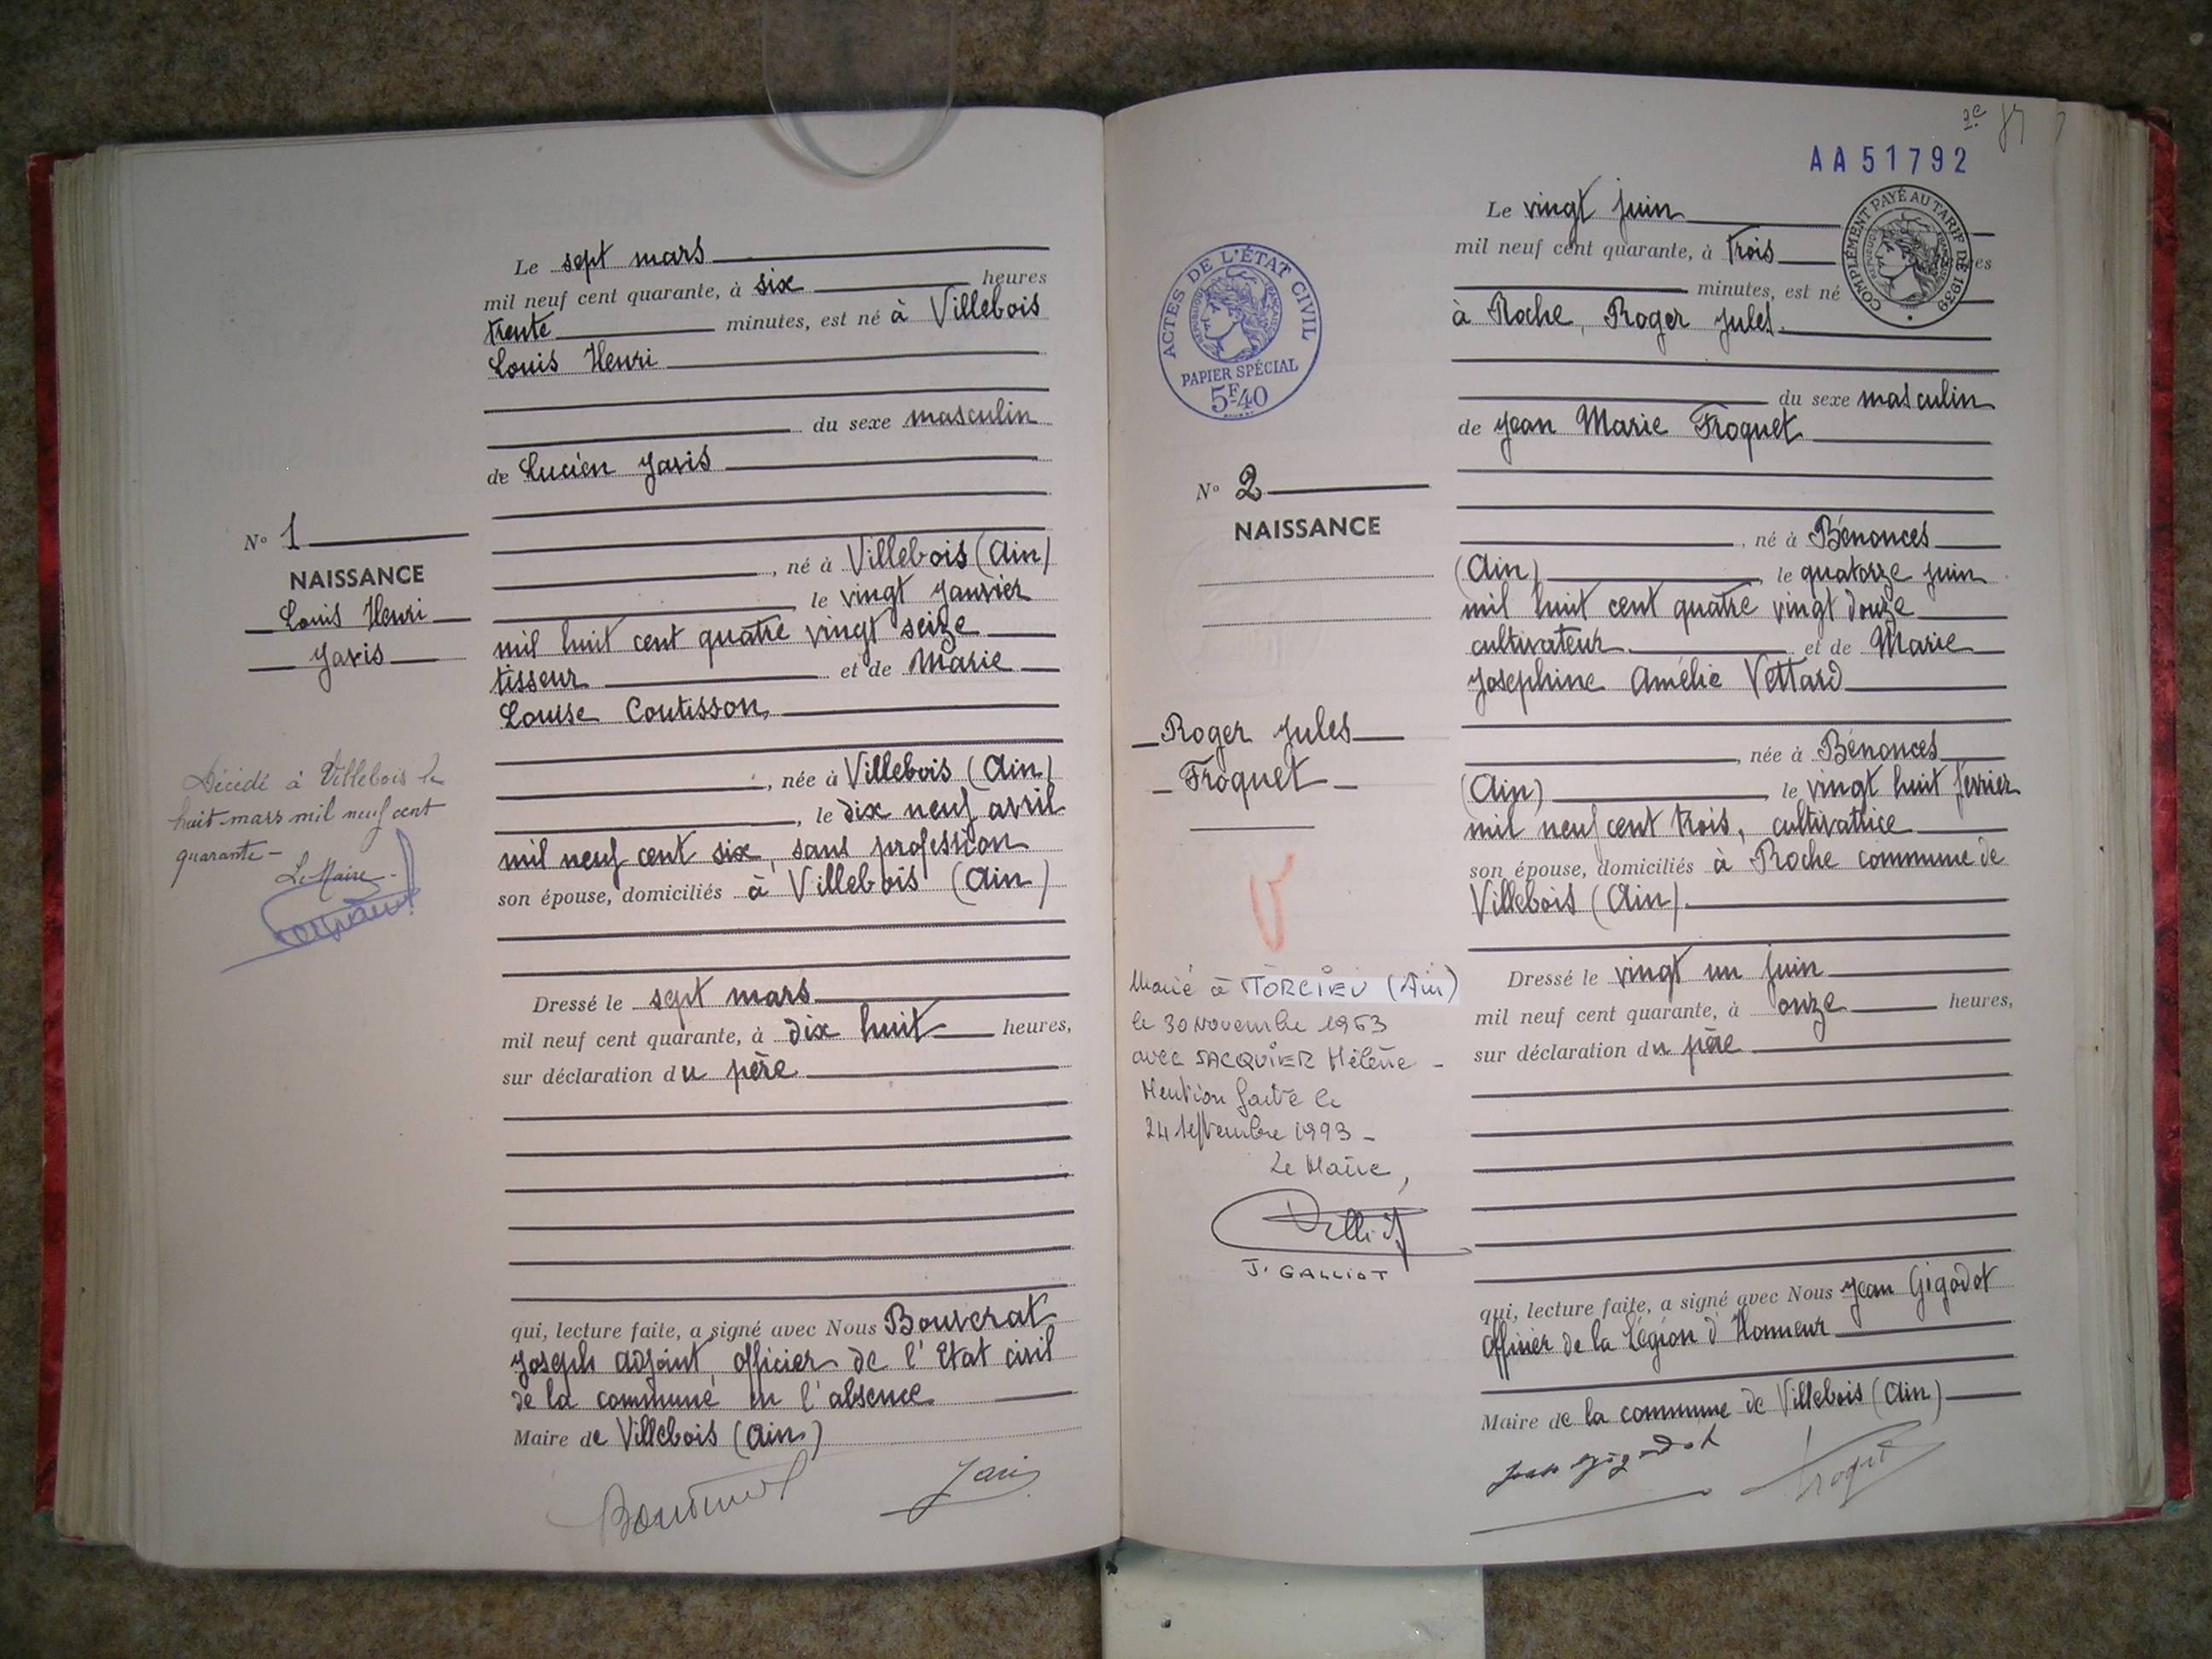 Le sept mars
mil neuf cent quarante, à six heures
trente minutes, est né à Villebois
Louis Henri
du sexe masculin
de Lucien Javis
N° 1
NAISSANCE
Louis Henri
Javis
né à Villebois (Ain)
le vingt janvier
mil huit cent quatre vingt seize
tisseur et de Marie
Louise Coutisson,
, née à Villebois (Ain)
, le dix neuf avril
mil neuf cent six, sans profession
son épouse, domiciliés à Villebois (Ain)
Décédé à Villebois le
huit mars mil neuf cent
quarante -
Le Maire -
Dressé le sept mars
mil neuf cent quarante, à dix huit heures,
sur déclaration du père
qui, lecture faite, a signé avec Nous Bouvrat
Joseph adjoint, officier de l'Etat civil
de la commune en l'absence
Maire de Villebois (Ain)
Javis
2e
AA51792
Le vingt juin
mil neuf cent quarante, à trois
minutes, est né
à Roche, Roger Jules.
COMPLÉMENT PAYÉ AU TARIF DE 1939
ACTES DE L'ÉTAT CIVIL
PAPIER SPÉCIAL
5F40
du sexe masculin
de Jean Marie Froquet
N° 2
NAISSANCE
Roger Jules
Froquet
, né à Bénonces
(Ain) , le quatorze juin
mil huit cent quatre vingt douze
cultivateur et de Marie
Josephine Amélie Vettard
, née à Bénonces
(Ain) , le vingt huit février
mil neuf cent trois, cultivatrice
son épouse, domiciliés à Roche commune de
Villebois (Ain).
V
Marié à TORCIEU (Ain)
le 30 Novembre 1963
avec JACQUIER Hélène -
Mention faite le
24 septembre 1993 -
Le Maire,
J. GALLIOT
Dressé le vingt un juin
mil neuf cent quarante, à onze heures,
sur déclaration du père
qui, lecture faite, a signé avec Nous Jean Gigodot
Officier de la Légion d'Honneur
Maire de la commune de Villebois (Ain)
Jean Gigodot